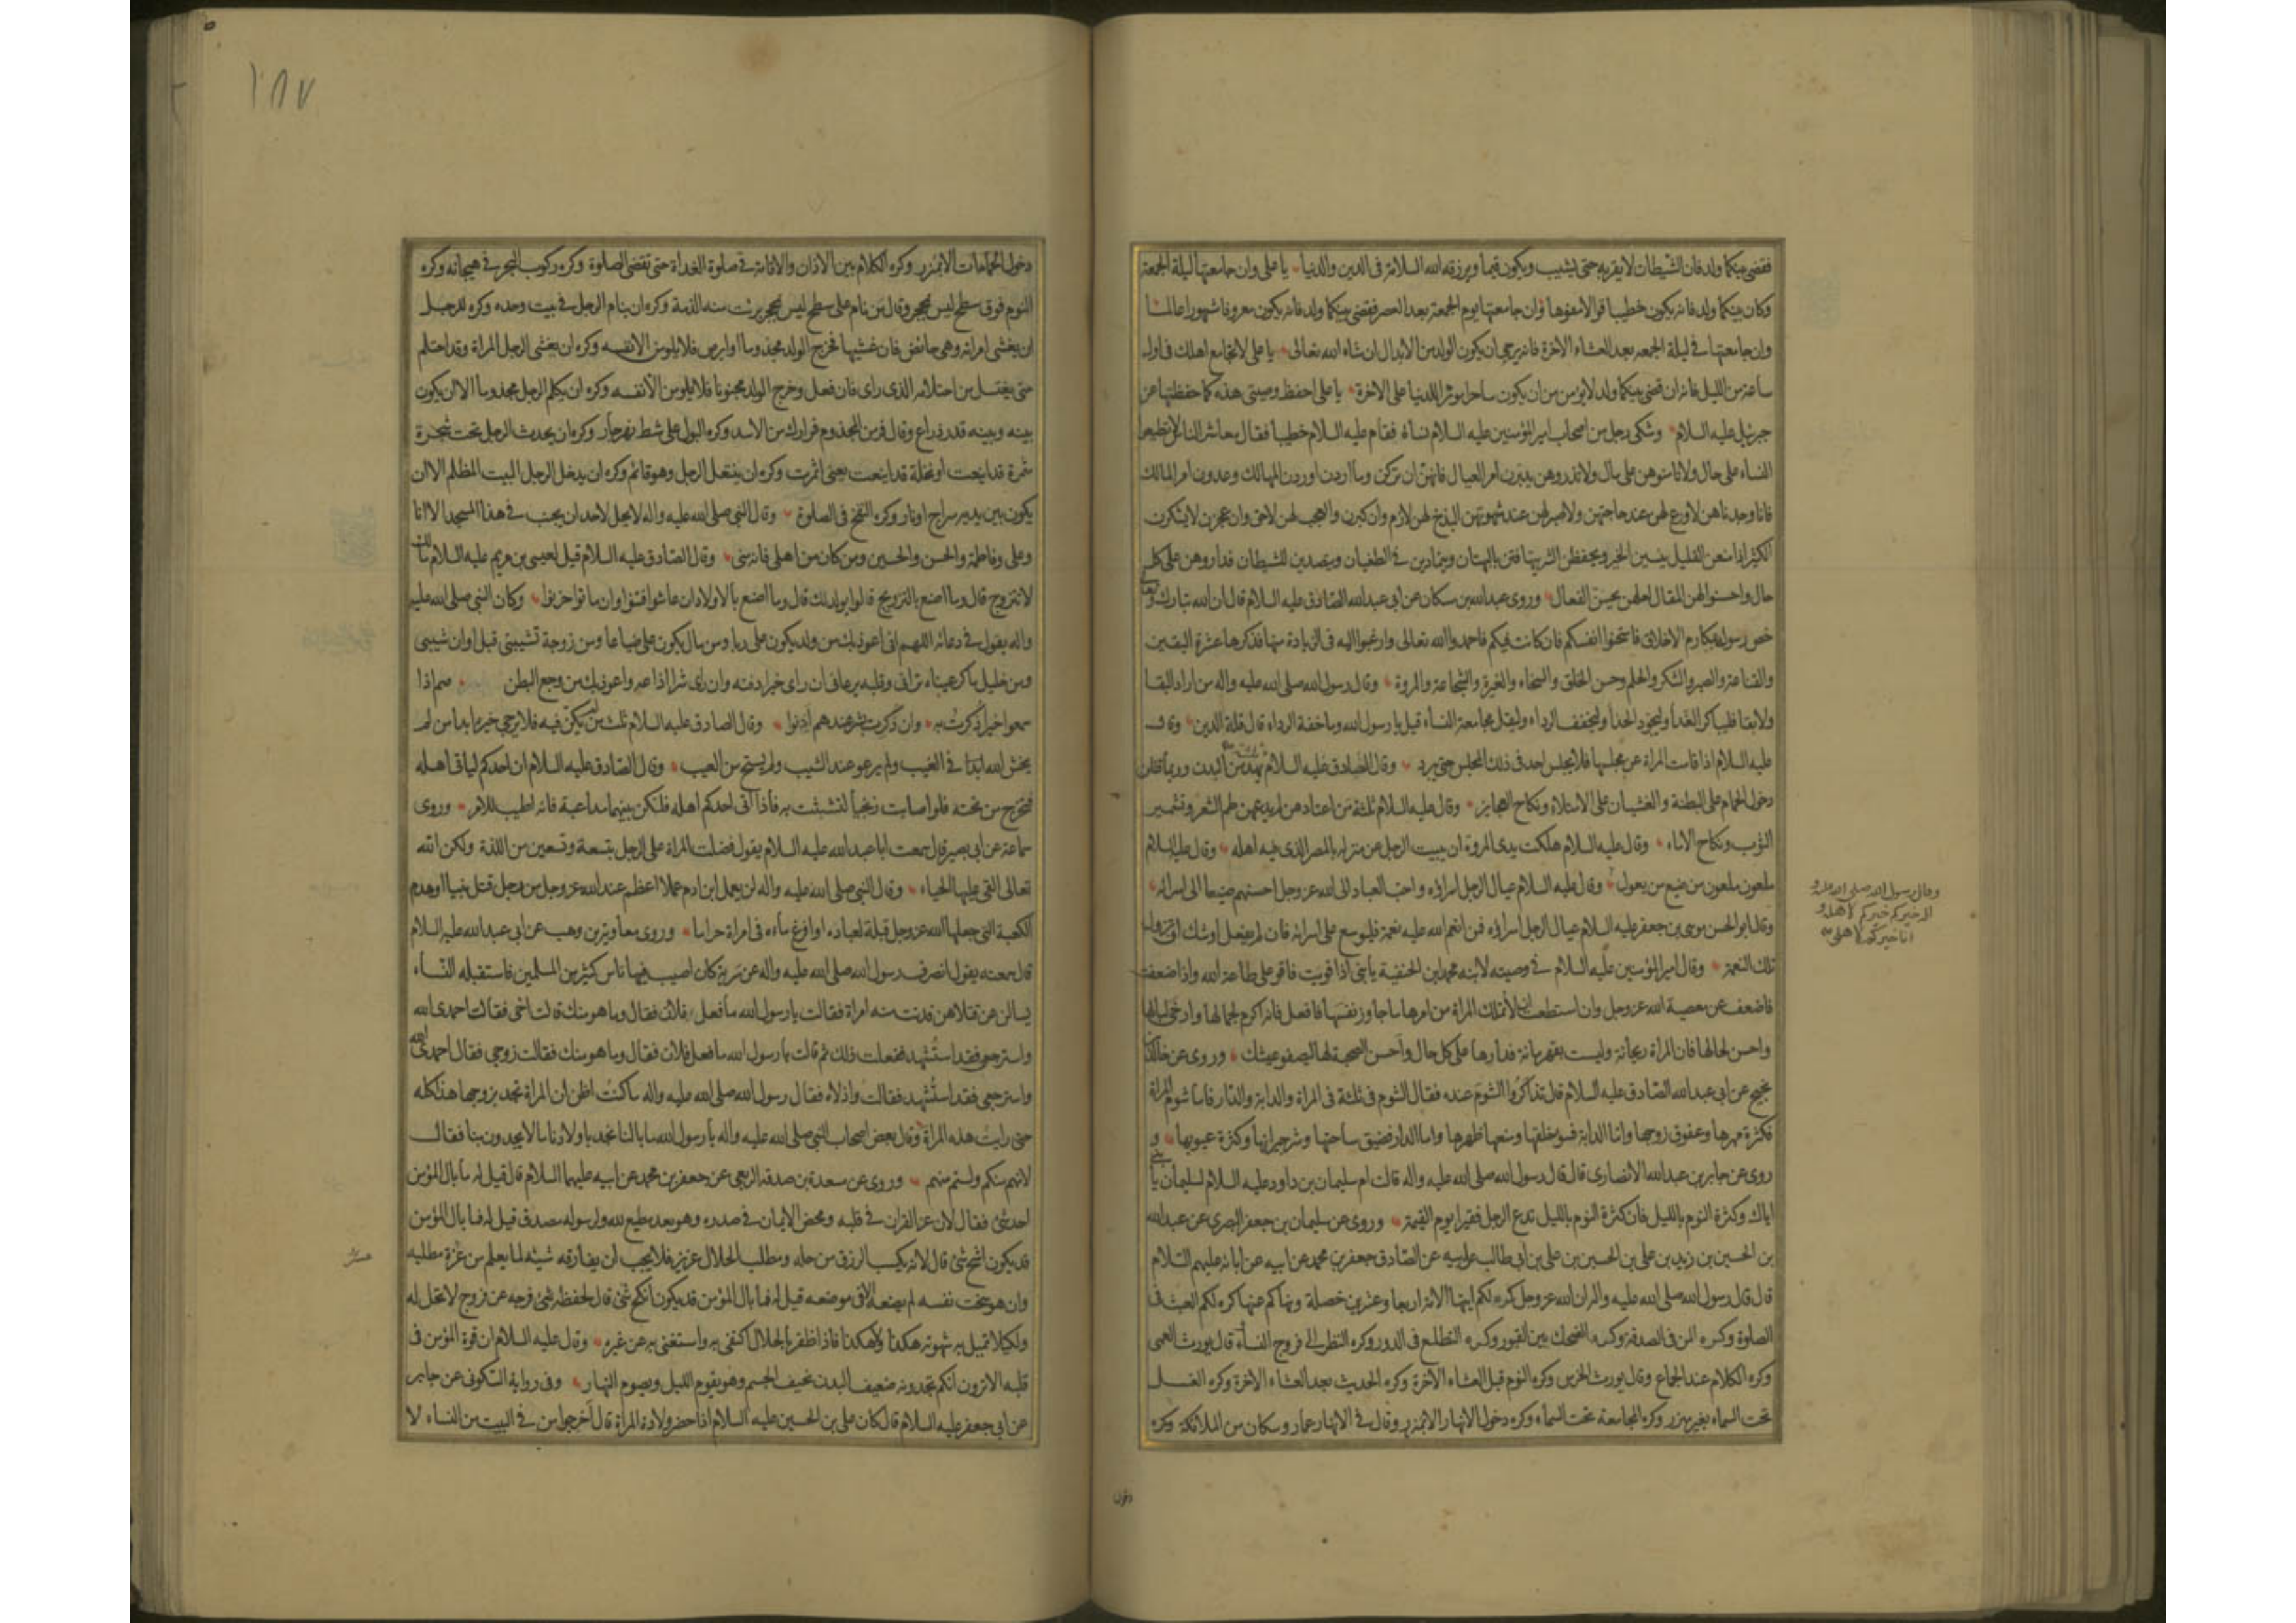 فقضى بينكما ولد فان الشيطان لا يقربه حتى يشيب ويكون قيما ويرزقه الله السلامة فى الدين والدنيا يا على وان جامعتها ليلة الجمعة
وكان بينكما ولد فانه يكون خطيبا قوالا مفوها وان جامعتها يوم الجمعة بعد العصر فقضى بينكما ولد فانه يكون معروفا مشهورا عالما
وان جامعتها فى ليلة الجمعه بعد العشاء الاخرة فانه يرجى ان يكون الولد من الابدال ان شاء الله تعالى يا على لا تجامع اهلك فى اول
ساعة من الليل فانه ان قضى بينكما ولد لا يؤمن من ان يكون ساحرا موثرا للدنيا على الاخرة يا على احفظ وصيتى هذه كما حفظتها عن
جبرئيل عليه السلام وشكى رجل من اصحاب امير المؤمنين عليه السلام نساءه فقام عليه السلام خطيبا فقال معاشر الناس لا تطيعوا
النساء على حال ولا تامنوهن على مال ولا تذروهن يدبرن امر العيال فانهن ان تركن وما اردن اوردن المهالك وعدون امر المالك
فانا وجدناهن لا ورع لهن عند حاجتهن ولا صبر لهن عند شهوتهن البذخ لهن لازم وان كبرن والعجب لهن لاحق وان عجزن لا يشكرن
الكثير اذا منعن القليل ينسين الخير ويحفظن الشر يتهافتن بالبهتان ويتمادين فى الطغيان ويتصدين للشيطان فداروهن على كل
حال واحسنوا لهن المقال لعلهن يحسن الفعال وروى عبد الله بن مسكان عن ابى عبد الله الصادق عليه السلام قال ان الله تبارك وتعالى
خص رسوله بمكارم الاخلاق فامتحنوا انفسكم فان كانت فيكم فاحمدوا الله تعالى وارغبوا اليه فى الزيادة منها فذكرها عشرة اليقين
والقناعة والصبر والشكر والحلم وحسن الخلق والسخاء والغيرة والشجاعة والمروة وقال رسول الله صلى الله عليه واله من اراد البقا
ولا بقا فليباكر الغدأ وليجود الحذأ وليخفف الرداء وليقل مجامعة النسأ قيل يا رسول الله وما خفة الرداء قال قلة الدين وقال
عليه السلام اذا قامت المراة عن مجلسها فلا يجلس احد فى ذلك المجلس حتى يبرد وقال الصادق عليه السلام ثلثة يهدمن البدن وربما قتلن
دخول الحمام على البطنة والغشيان على الامتلاء ونكاح العجايز وقال عليه السلام ثلثة من اعتادهن لم يدعهن طم الشعر وتشمير
الثوب ونكاح الاماء وقال عليه السلام هلكت بذى المروة ان يبيت الرجل عن منزله بالمصر الذى فيه اهله وقال عليه السلام
ملعون ملعون من ضيع من يعول وقال عليه السلام عيال الرجل اسراؤه واحب العباد الى الله عز وجل احسنهم صنيعا الى اسرائه
وقال ابو الحسن موسى بن جعفر عليه السلام عيال الرجل اسراؤه فمن انعم الله عليه نعمة فليوسع على اسرائه فان لم يفعل اوشك ان تزول
تلك النعمة وقال امير المؤمنين عليه السلام فى وصيته لابنه محمد ابن الحنفية يا بنى اذا قويت فاقو على طاعة الله واذا ضعفت
فاضعف عن معصية الله عز وجل وان استطعت ان لا تملك المراة من امرها ما جاوز نفسها فافعل فانه اكرم لجمالها وارخى لبالها
واحسن لحالها فان المراة ريحانة وليست بقهرمانة فدارها على كل حال واحسن الصحبة لها ليصفو عيشك وروى عن خالد بن
نجيح عن ابى عبد الله الصادق عليه السلام قال تذاكروا الشوم عنده فقال الشوم فى ثلثة فى المراة والدابة والدار فاما شوم المراة
فكثرة مهرها وعقوق زوجها واما الدابة فسوء خلقها ومنعها ظهرها واما الدار فضيق ساحتها وشر جيرانها وكثرة عيوبها و
روى عن جابر بن عبد الله الانصارى قال قال رسول الله صلى الله عليه واله قالت ام سليمان بن داود عليه السلام لسليمان يا بنى
اياك وكثرة النوم بالليل فان كثرة النوم بالليل تدع الرجل فقيرا يوم القيمة وروى عن سليمان بن جعفر البصرى عن عبد الله
بن الحسين بن زيد بن على بن الحسين بن على بن ابى طالب عن ابيه عن الصادق جعفر بن محمد عن ابيه عن ابائه عليهم السلام
قال قال رسول الله صلى الله عليه واله ان الله عز وجل كره لكم ايتها الامة اربعا وعشرين خصلة ونهاكم عنها كره لكم العبث فى
الصلوة وكره المن فى الصدقة وكره الضحك بين القبور وكره التطلع فى الدور وكره النظر الى فروج النساء وقال يورث العمى
وكره الكلام عند الجماع وقال يورث الخرس وكره النوم قبل العشاء الاخرة وكره الحديث بعد العشاء الاخرة وكره الغسل
تحت السماء بغير مئزر وكره المجامعة تحت السماء وكره دخول الانهار الا بمئزر وقال فى الانهار عمار وسكان من الملائكة وكره
وقال رسول الله صلى الله عليه و
اله خيركم خيركم لاهله و
انا خيركم لاهلى
دخول
١٨٧
دخول الحمامات الا بمئزر وكره الكلام بين الاذان والاقامة فى صلوة الغداة حتى تقضى الصلوة وكره ركوب البحر فى هيجانه وكره
النوم فوق سطح ليس بمحجر وقال من نام على سطح ليس بمحجر برئت منه الذمة وكره ان ينام الرجل فى بيت وحده وكره للرجل
ان يغشى امراته وهى حائض فان غشيها فخرج الولد مجذوما او ابرص فلا يلومن الا نفسه وكره ان يغشى الرجل المراة وقد احتلم
حتى يغتسل من احتلامه الذى راى فان فعل وخرج الولد مجنونا فلا يلومن الا نفسه وكره ان يكلم الرجل مجذوما الا ان يكون
بينه وبينه قدر ذراع وقال فر من المجذوم فرارك من الاسد وكره البول على شط نهر جار وكره ان يحدث الرجل تحت شجرة
مثمرة قد اينعت او نخلة قد اينعت يعنى اثمرت وكره ان يتنعل الرجل وهو قائم وكره ان يدخل الرجل البيت المظلم الا ان
يكون بين يديه سراج او نار وكره النفخ فى الصلوة وقال النبى صلى الله عليه واله لا يحل لاحد ان يجنب فى هذا المسجد الا انا
وعلى وفاطمة والحسن والحسين ومن كان من اهلى فانه منى وقال الصادق عليه السلام قيل لعيسى بن مريم عليه السلام ما لك
لا تتزوج قال وما اصنع بالتزويج قالوا يولد لك قال وما اصنع بالاولاد ان عاشوا فتنوا وان ماتوا حزنوا وكان النبى صلى الله عليه
واله يقول فى دعائه اللهم انى اعوذ بك من ولد يكون على ربا ومن مال يكون على ضياعا ومن زوجة تشيبنى قبل اوان شيبى
ومن خليل ماكر عيناه ترانى وقلبه يرعانى ان راى خيرا دفنه وان راى شرا اذاعه واعوذ بك من وجع البطن صم اذا
سمعوا خيرا ذكرت به وان ذكرت بشر عندهم اذنوا وقال الصادق عليه السلام ثلث من لم يكن فيه فلا يرجى خيره ابدا من لم
يخش الله ابدا فى الغيب ولم يرعو عند الشيب ولم يستح من العيب وقال الصادق عليه السلام ان احدكم لياتى اهله
فتخرج من تحته فلو اصابت زنجيا لتشبثت به فاذا اتى احدكم اهله فلتكن بينهما مداعبة فانه اطيب للامر وروى
سماعة عن ابى بصير قال سمعت ابا عبد الله عليه السلام يقول فضلت المراة على الرجل بتسعة وتسعين من اللذة ولكن الله
تعالى القى عليها الحياء وقال النبى صلى الله عليه واله لن يعمل ابن ادم عملا اعظم عند الله عز وجل من رجل قتل نبيا او هدم
الكعبة التى جعلها الله عز وجل قبلة لعباده او افرغ ماءه فى امراة حراما وروى معاوية بن وهب عن ابى عبد الله عليه السلام
قال سمعته يقول انصرف رسول الله صلى الله عليه واله عن سرية كان اصيب فيها ناس كثير من المسلمين فاستقبله النساء
يسالن عن قتلاهن فدنت منه امراة فقالت يا رسول الله ما فعل فلان فقال وما هو منك قالت اخى فقال احمدى الله
واسترجعى فقد استشهد ففعلت ذلك ثم قالت يا رسول الله ما فعل فلان فقال وما هو منك فقالت زوجى فقال احمدى الله
واسترجعى فقد استشهد فقالت واذلاه فقال رسول الله صلى الله عليه واله ما كنت اظن ان المراة تجد بزوجها هذا كله
حتى رايت هذه المراة وقال بعض اصحاب النبى صلى الله عليه واله يا رسول الله ما بالنا نجد باولادنا ما لا يجدون بنا فقال
لانهم منكم ولستم منهم وروى عن مسعدة بن صدقة الربعى عن جعفر بن محمد عن ابيه عليهما السلام قال قيل له ما بال المؤمن
احد شئ فقال لان عز القران فى قلبه ومحض الايمان فى صدره وهو بعد مطيع لله ولرسوله مصدق قيل له فما بال المؤمن
قد يكون اشح شئ قال لانه يكسب الرزق من حله ومطلب الحلال عزيز فلا يحب ان يفارقه شيئه لما يعلم من عزة مطلبه
وان هو سخت نفسه لم يضعه الا فى موضعه قيل له فما بال المؤمن قد يكون انكح شئ قال لحفظه فرجه عن فروج لا تحل له
ولكيلا تميل به شهوته هكذا ولا هكذا فاذا ظفر بالحلال اكتفى به واستغنى به عن غيره وقال عليه السلام ان قوة المؤمن فى
قلبه الا ترون انكم تجدونه ضعيف البدن نحيف الجسم وهو يقوم الليل ويصوم النهار وفى رواية السكونى عن جابر
عن ابى جعفر عليه السلام قال كان على بن الحسين عليه السلام اذا حضر ولادة المراة قال اخرجوا من فى البيت من النساء لا